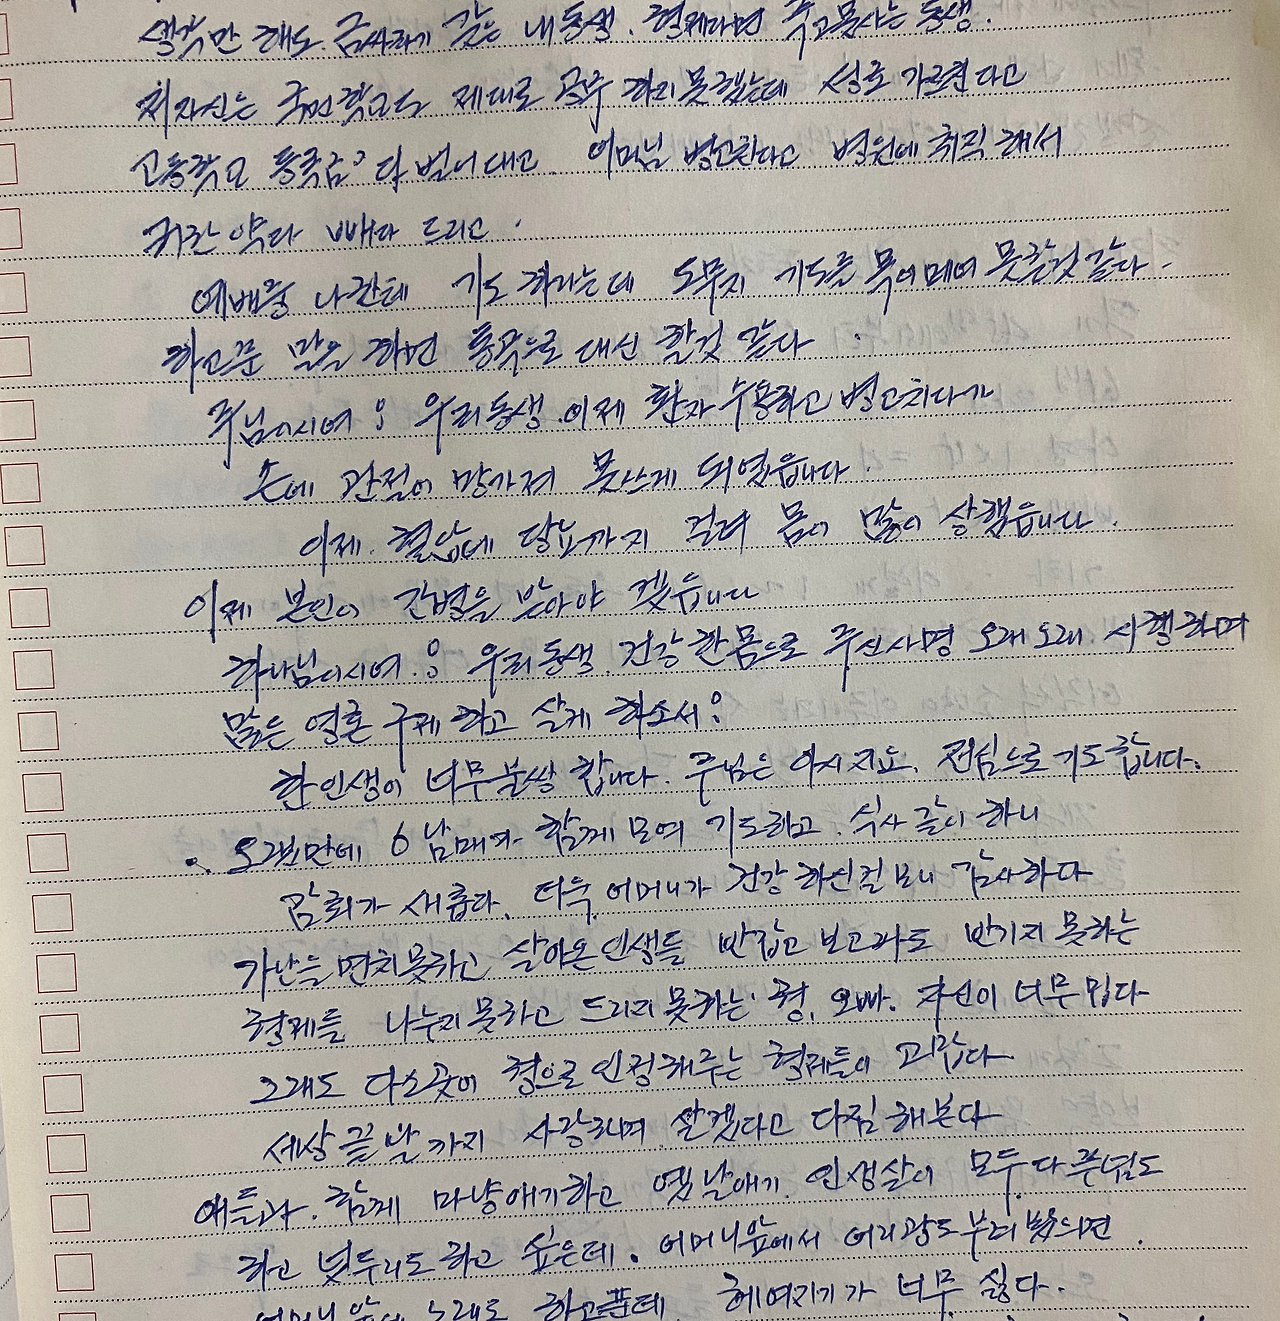 생각만 해도 금싸라기 같은 내 동생. 형제라면 죽고 못사는 동생.
저 자신은 국민학교도 제대로 공부 하지 못했는데 성로 가르친다고
고등학교 등록금 다 벌어대고. 어머님 병고친다고 병원에 취직해서
귀한 약 다 빼다 드리고.
예배를 나한테 기도 하라는데 도무지 기도를 목이메여 못할것 같다.
하고픈 말을 하면 통곡으로 대신 할것 같다
주님이시여! 우리동생 이제 환자 수용하고 병고치다가
손에 관절이 망가져 못쓰게 되였읍니다.
이제. 혈압에 당뇨까지 걸려 몸이 많이 상했읍니다.
이제 본인이 간병을 받아야 겠읍니다
하나님이시여! 우리동생. 건강한 몸으로 주신사명 오래오래 시행하며
많은 영혼 구제 하고 살게 하소서!
한 인생이 너무 불쌍 합니다. 주님은 아시지요. 전심으로 기도 합니다.
. 오랜만에 6남매가 함께 모여 기도하고. 식사 같이 하니
감회가 새롭다. 더욱 어머니가 건강 하신걸 보니 감사하다
가난을 면치못하고 살아온 인생들 반갑고 보고파도 반기지 못하는
형제들 나누지 못하고 드리지 못하는 형, 오빠. 자신이 너무 밉다
그래도 다소곳이 형으로 인정해주는 형제들이 고맙다
세상 끝날까지 사랑하며 살겠다고 다짐 해본다
애들과. 함께 마냥 얘기하고 옛날얘기. 인생살이 모두 다 푸념도
하고 넋두리도 하고 싶은데. 어머니앞에서 어리광도 부려 봤으면.
어머니 앞에 노래도 하고픈데 헤여지기가 너무 싫다.